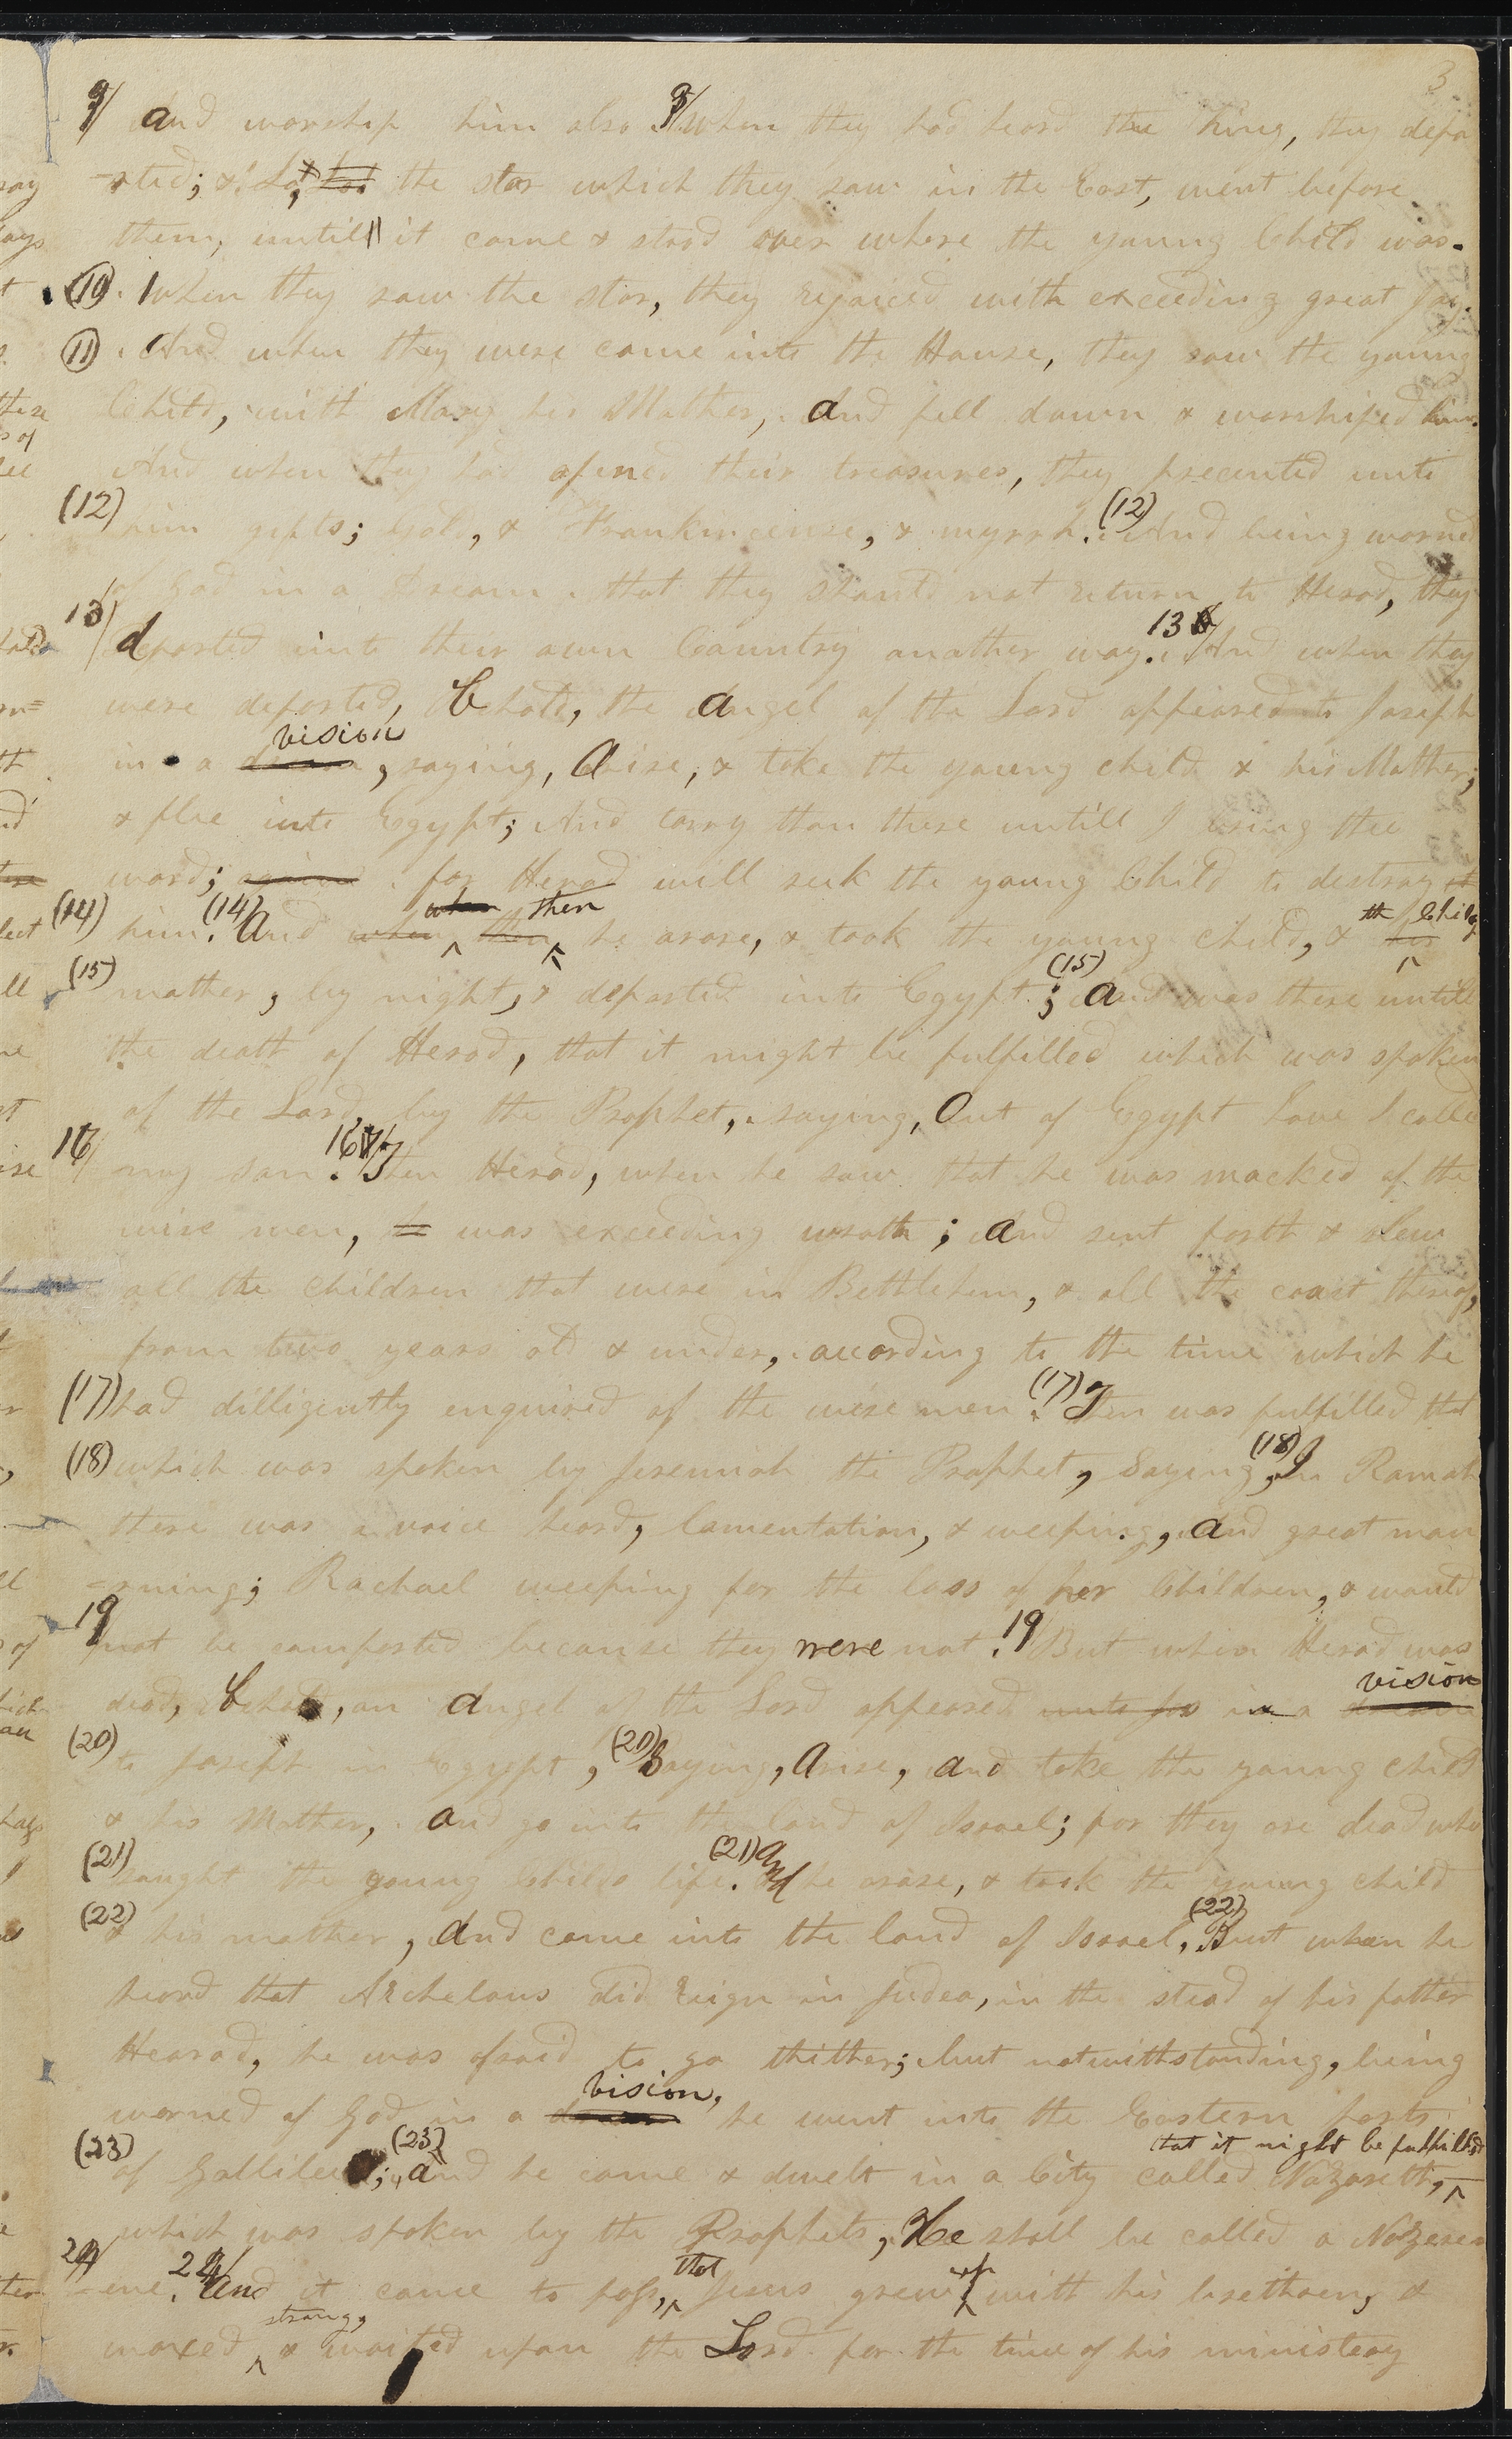 3
9/ and worship him also. 9/ when they had heard the King, they depa
-rted; & Lo, the star which they saw in the East, went before
them, untill it came & stood over where the young Child was.
(10). When they saw the star, they rejoiced with exceeding great joy.
(11). And when they were come into the House, they saw the young
Child, with Mary his Mother, and fell down & worshiped him.
And when they had opened their treasures, they precented unto
(12) him gifts; Gold, & Frankincense, & myrrh. (12) And being warned
of God in a dream that they should not return to Herod, they
13/ departed into their own Country another way. 13 And when they
were departed, behold, the angel of the Lord appeared to Joseph
vision
in a dream, saying, Arise, & take the young child & his Mother,
& flee into Egypt; And tarry thou there untill I bring thee
word; again for Herod will seek the young Child to destroy it
when then the Childs
(14) him. (14) And when then he arose, & took the young child, & his
(15) mother, by night, & departed into Egypt; (15) and was there untill
the death of Herod, that it might be fulfilled which was spoken
of the Lord, by the Prophet, saying, Out of Egypt have I called
16/ my son. 16/ Then Herod, when he saw that he was mocked of the
wise men, he was exceeding wroth; and sent forth & slew
all the children that were in Bethlehem, & all the coast thereof,
from two years old & under, according to the time which he
(17) had dilligently enquired of the wise men. (17) Then was fulfilled that
(18) which was spoken by Jeremiah the Prophet, Saying, (18) In Ramah
there was a voice heard, lamentation, & weeping, and great mou
=rning; Rachael weeping for the loss of her Children, & would
19 not be comforted because they were not. 19 But when Herod was
vision
dead, behold, an angel of the Lord appeared unto Jos in a dream
(20) to Joseph in Egypt, (20) Saying, Arise, and take the young child
& his Mother, and go into the land of Israel; for they are dead who
(21) saught the young Childs life. (21) and he arose, & took the young child
(22) & his mother, and came into the land of Israel, (22) But when he
heard that Archelaus did reign in Judea, in the stead of his father
Hearod, he was afraid to go thither; but notwithstanding, being
vision,
warned of God in a dream he went into the Eastern parts
that it might be fulfilled
(23) of Gallilee; (23) and he came & dwelt in a City called Nazareth,
which was spoken by the Prophets, He shall be called a Nazeree
that up
24/ =ene. 24/ and it came to pass, Jesus grew with his bretheren, &
strong,
waxed & waited upon the Lord for the time of his ministery